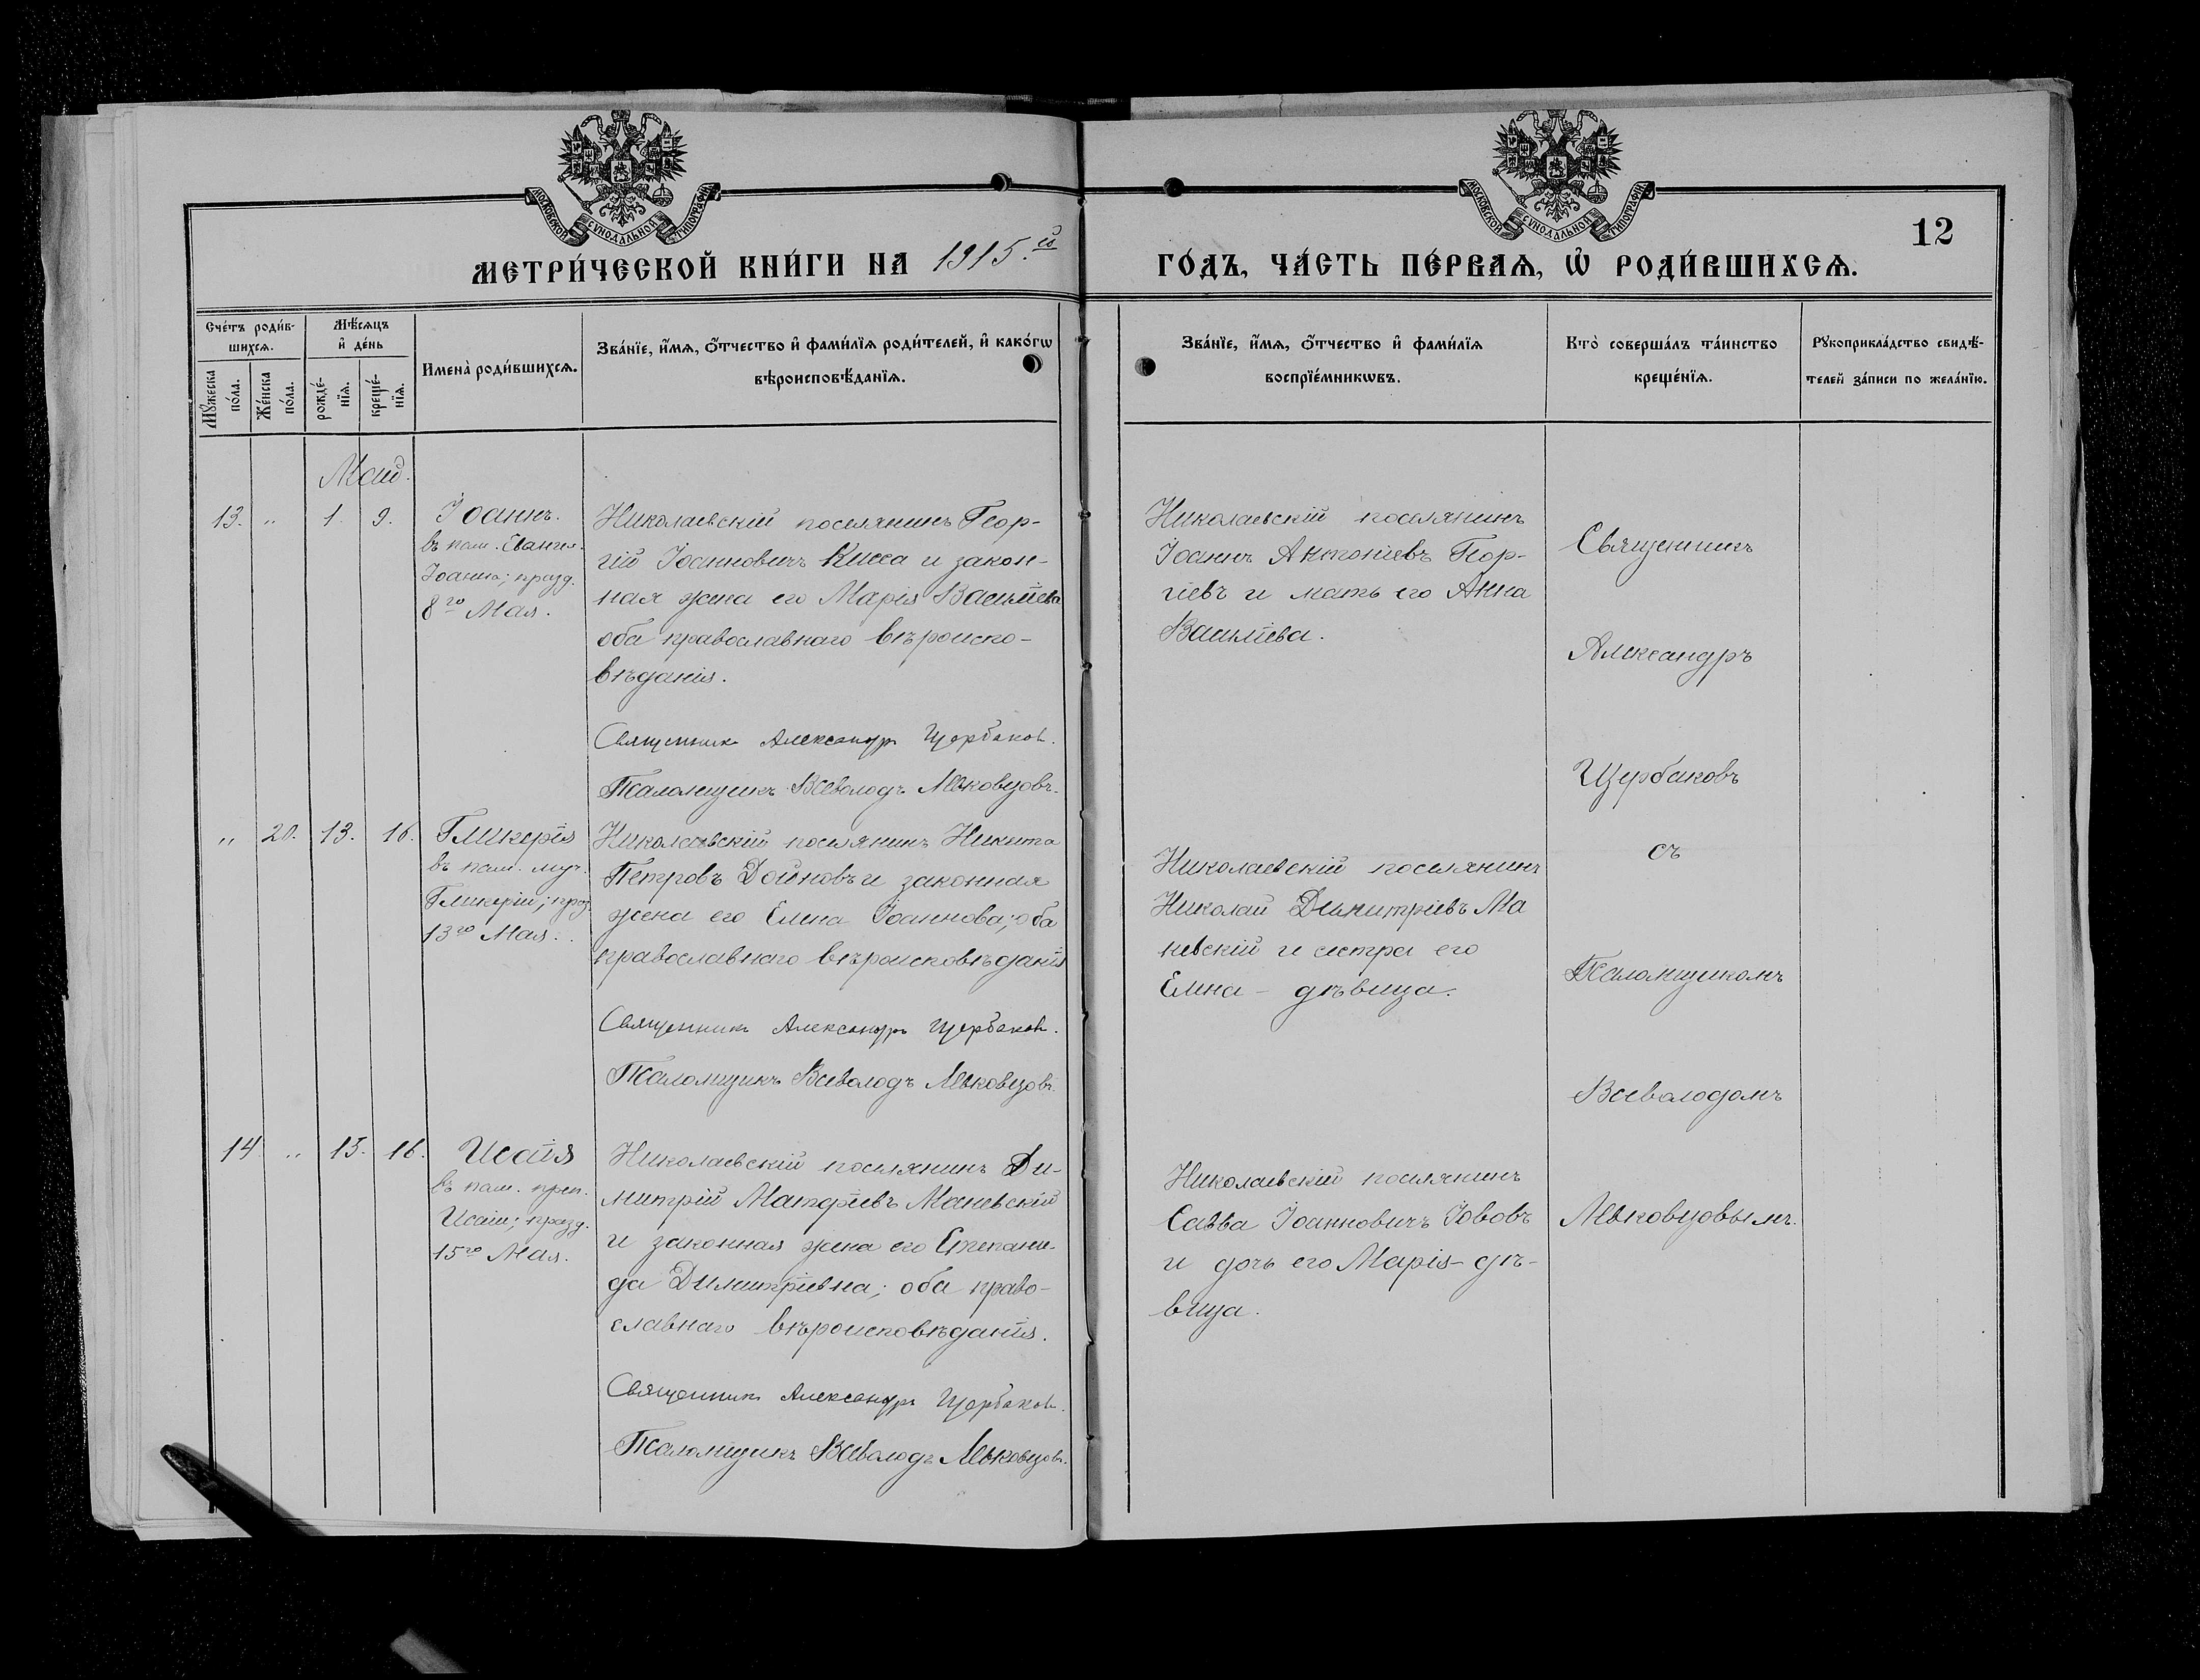 МОСКОВСКОЙ СѴНОДАЛЬНОЙ ТИПОГРАФІИ
МОСКОВСКОЙ СѴНОДАЛЬНОЙ ТИПОГРАФІИ
12
МЕТРИ́ЧЕСКОЙ КНИ́ГИ НА 1915.й
ГО́ДЪ, ЧА́СТЬ ПЕ́РВАѦ, Ѽ РОДИ́ВШИХСѦ.
Сче́тъ роди́в-
шихсѧ.
Мꙋ́жеска
по́ла.
Же́нска
по́ла.
Мѣ́сѧцъ
и҆ де́нь
рожде́-
нїѧ.
креще́-
нїѧ.
Имена̀ роди́вшихсѧ.
Зва́нїе, и҆́мѧ, ѻ҆́тчество и҆ фами́лїѧ роди́телей, и҆ како́гѡ
вѣроисповѣ́данїѧ.
Зва́нїе, и҆́мѧ, ѻ҆́тчество и҆ фами́лїѧ
воспрїе́мникѡвъ.
Кто̀ соверша́лъ та́инство
креще́нїѧ.
Рꙋкоприкла́дство свидѣ́-
телей за́писи по жела́нїю.
Май.
13. " 1. 9.
Іоаннъ.
въ пам. Евангел.
Іоанна; празд.
8го Мая.
Николаевскій поселянинъ Геор-
гій Іоанновичъ Кисса и закон-
ная жена его Марія Василіева
оба православнаго вѣроиспо-
вѣданія.
Священникъ Александръ Щербаковъ.
Псаломщикъ Всеволодъ Левковцовъ.
Николаевскій поселянинъ
Іоаннъ Антоніевъ Геор-
гіевъ и мать его Анна
Василіева.
Священникъ
Александръ
Щербаковъ
съ
Псаломщикомъ
Всеволодомъ
Левковцовымъ.
" 20. 13. 16.
Гликерія
въ пам. муч.
Гликеріи; праз.
13го Мая.
Николаевскій поселянинъ Никита
Петровъ Дойновъ и законная
жена его Елена Іоаннова; оба
православнаго вѣроисповѣданія
Священникъ Александръ Щербаковъ.
Псаломщикъ Всеволодъ Левковцовъ.
Николаевскій поселянинъ
Николай Димитріевъ Ма
невскій и сестра его
Елена - дѣвица.
14 " 15. 16.
Исаія
въ пам. преп.
Исаіи; празд.
15го Мая.
Николаевскій поселянинъ Ди-
митрій Матфіевъ Маневскій
и законная жена его Степани-
да Димитріевна; оба право-
славнаго вѣроисповѣданія.
Священникъ Александръ Щербаковъ.
Псаломщикъ Всеволодъ Левковцовъ.
Николаевскій поселянинъ
Савва Іоанновичъ Іововъ
и дочь его Марія - дѣ-
вица.